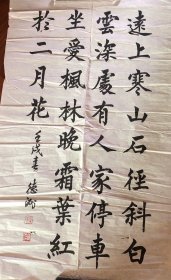 遠上寒山石徑斜白
雲深處有人家停車
坐愛楓林晚霜葉紅
於二月花
壬戌春